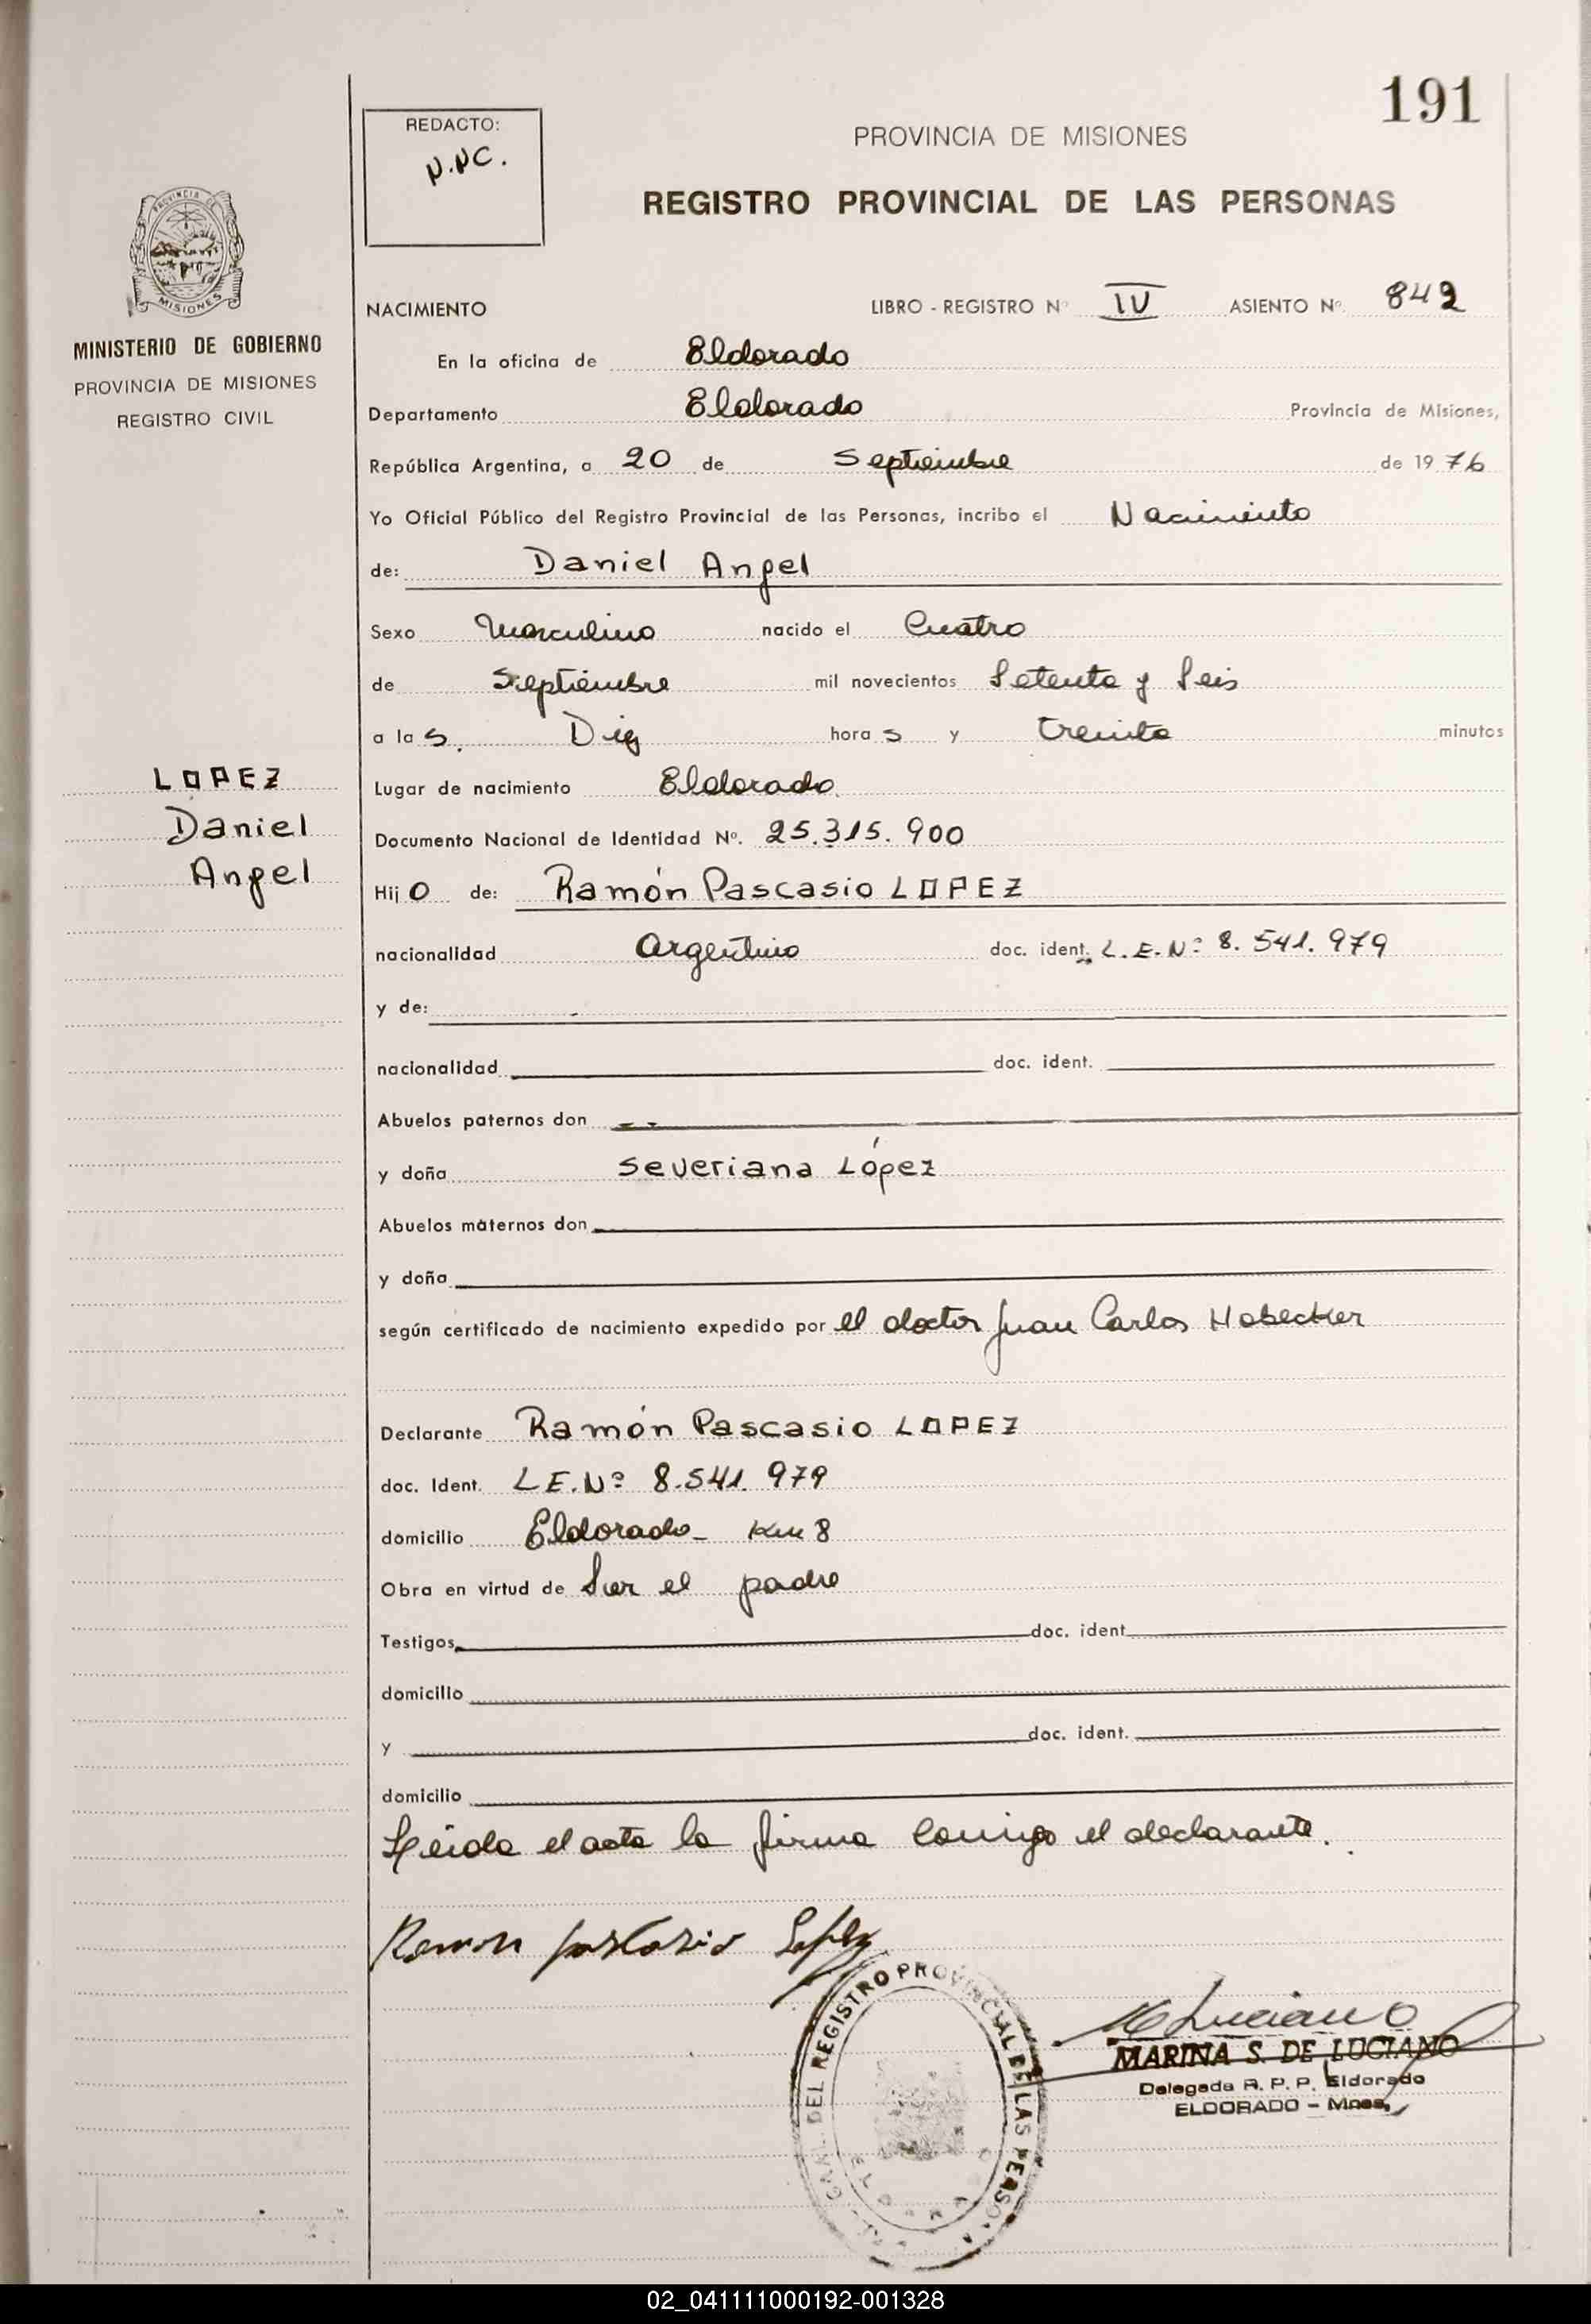 191
REDACTO:
N.NC.
PROVINCIA DE MISIONES
REGISTRO PROVINCIAL DE LAS PERSONAS
PROVINCIA DE
MISIONES
MINISTERIO DE GOBIERNO
PROVINCIA DE MISIONES
REGISTRO CIVIL
NACIMIENTO LIBRO - REGISTRO Nº IV ASIENTO Nº 842
En la oficina de Eldorado
Departamento Eldorado Provincia de Misiones,
República Argentina, a 20 de Septiembre de 1976
Yo Oficial Público del Registro Provincial de las Personas, incribo el Nacimiento
de: Daniel Angel
Sexo Masculino nacido el Cuatro
de Septiembre mil novecientos Setenta y Seis
a las. Diez horas y treinta minutos
LOPEZ
Daniel
Angel
Lugar de nacimiento Eldorado
Documento Nacional de Identidad Nº. 25.315.900
Hijo de: Ramón Pascasio LOPEZ
nacionalidad Argentino doc. ident. L.E.Nº 8.541.979
y de:
nacionalidad doc. ident.
Abuelos paternos don
y doña Severiana López
Abuelos maternos don
y doña
según certificado de nacimiento expedido por el doctor Juan Carlos Habecker
Declarante Ramón Pascasio LOPEZ
doc. Ident. L.E.Nº 8.541.979
domicilio Eldorado - Km 8
Obra en virtud de Ser el padre
Testigos doc. ident
domicilio
y doc. ident.
domicilio
Leida el acta la firma conmigo el declarante.
Ramon pascasio Lopez
DEL REGISTRO PROVINCIAL DE LAS PERSO
M Luciano
MARINA S. DE LUCIANO
Delegada R. P. P. Eldorado
ELDORADO - Mnes.
02_041111000192-001328